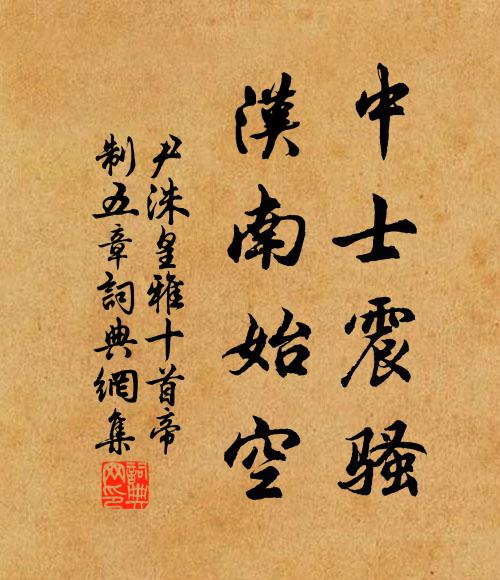 中士震骚
漢南始空
尹洙皇雅十首帝
制五章詞典網集